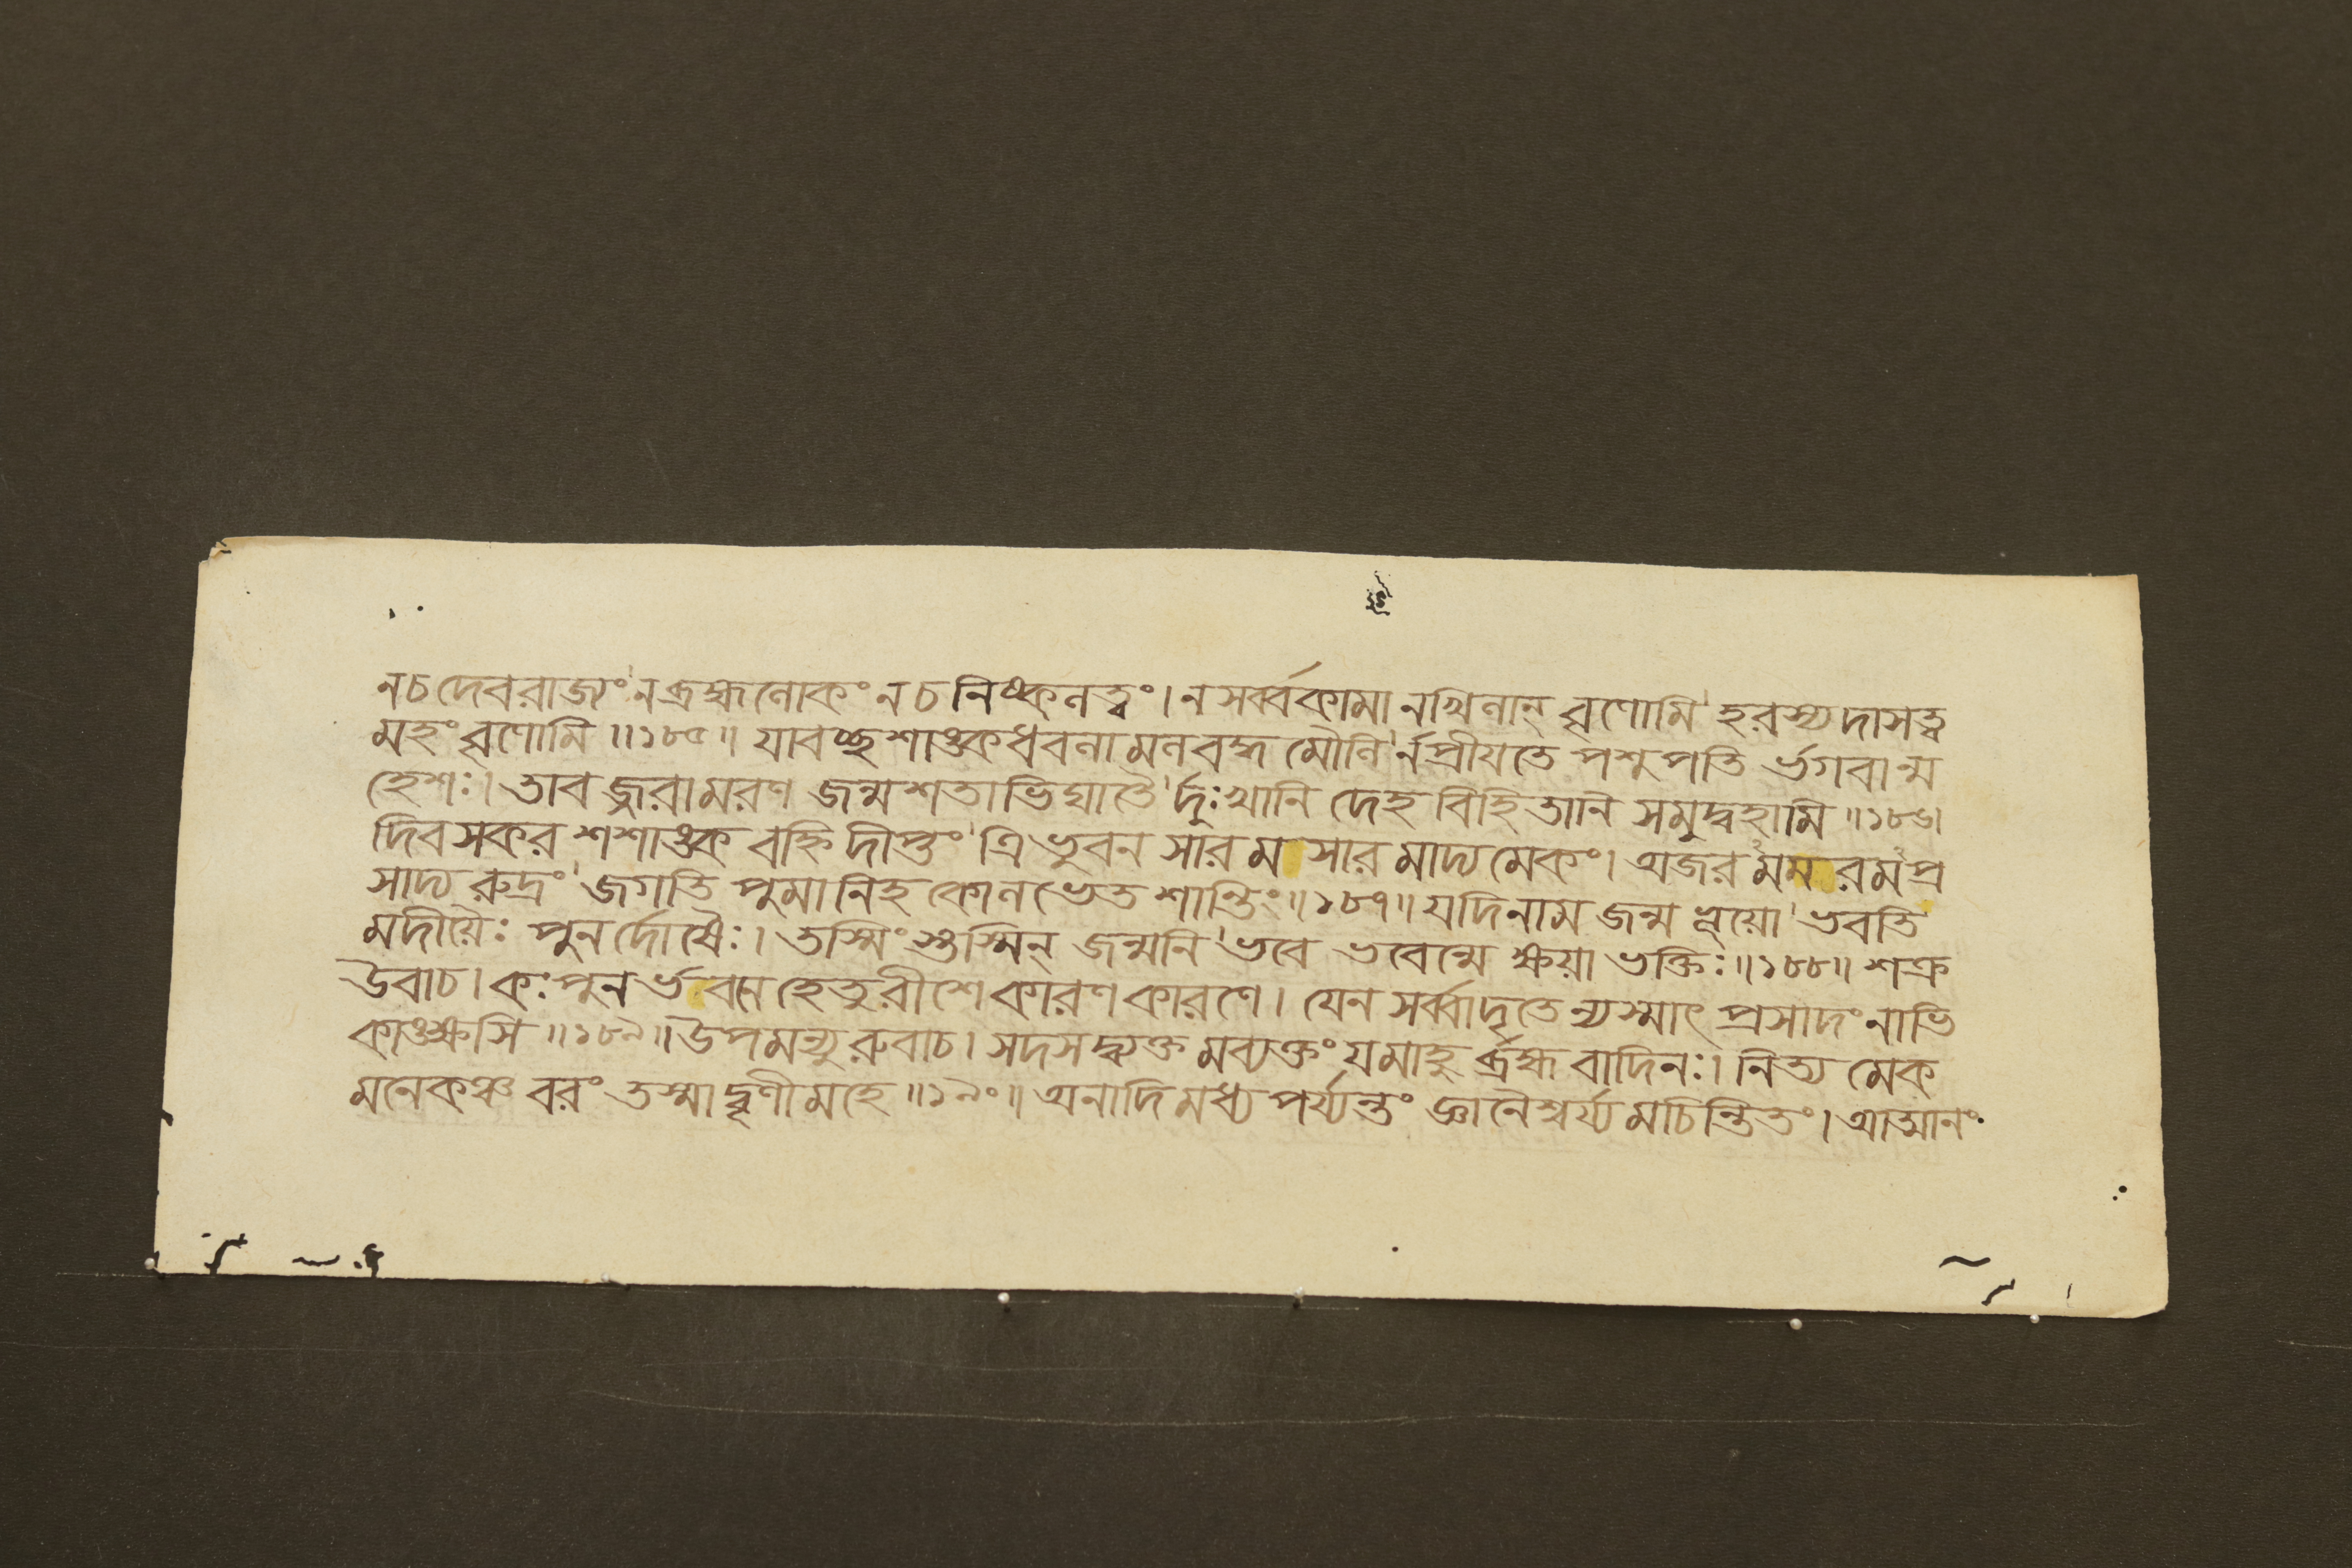 ন চ দেবরাজ্যং ন ব্রহ্মলোকং ন চ নিষ্কলত্বং। ন সর্ব্বকামানখিলান্ বৃণোমি হরস্য দাসত্ব
মহং বৃণোমি ॥১৮৫॥ যাবচ্ছশাঙ্কধবলামলবদ্ধমৌলির্ন প্রীয়তে পশুপতির্ভগবান্ম
হেশঃ। তাবজ্জরামরণজন্মশতাভিঘাতৈর্দুঃখানি দেহবিহিতানি সমুদ্বহামি ॥১৮৬।
দিবসকরশশাঙ্কবহ্নিদীপ্তং ত্রিভুবনসারমসারমাদ্যমেকং। অজরমমরমপ্র
সাদ্য রুদ্রং জগতি পুমানিহ কো লভেত শান্তিং॥১৮৭॥ যদি নাম জন্ম ভূয়ো ভবতি
মদীয়ৈঃ পুনর্দোষৈঃ। তস্মিংস্তস্মিন্ জন্মনি ভবে ভবেন্মেক্ষয়া ভক্তিঃ॥১৮৮॥ শক্র
উবাচ। কঃ পুনর্ভবনে হেতুরীশে কারণকারণে। যেন সর্ব্বাদৃতেন্যস্মাৎ প্রসাদং নাভি
কাঙ্ক্ষসি ॥১৮৯॥ উপমন্যুরুবাচ। সদসদ্ব্যক্তমব্যক্তং যমাহুর্ব্রহ্মবাদিনঃ। নিত্যমেক
মনেকঞ্চ বরং তস্মাদ্বৃণীমহে ॥১৯০॥ অনাদিমধ্যপর্য্যন্তং জ্ঞানৈশ্বর্য্যমচিন্তিতং। আত্মানং